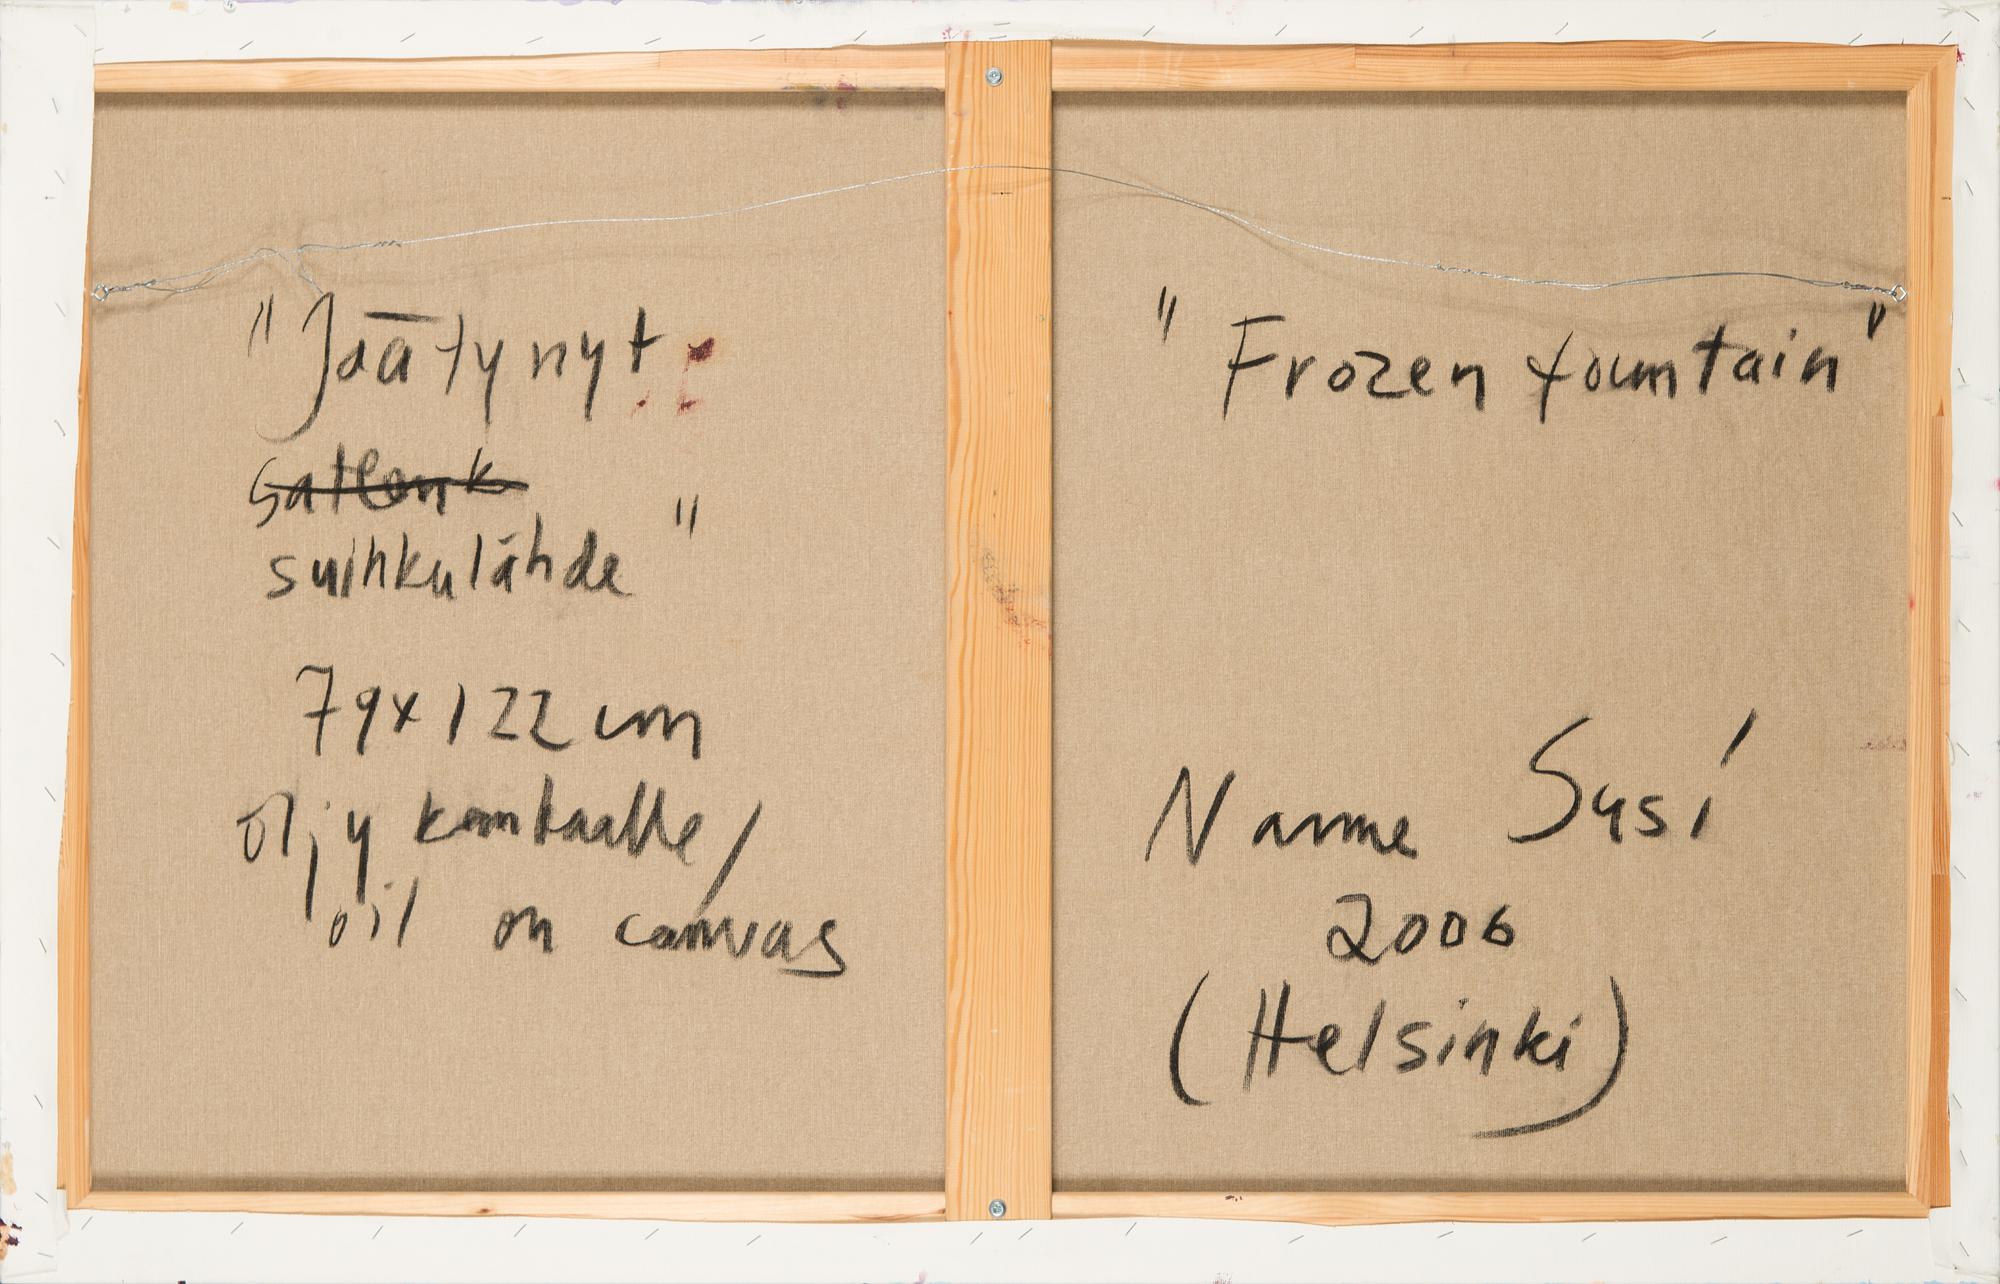 "Jäätynyt
suihkulähde"
79x122 cm
öljy kankaalle/
oil on canvas
"Frozen fountain"
Nanne Susi
2006
(Helsinki)